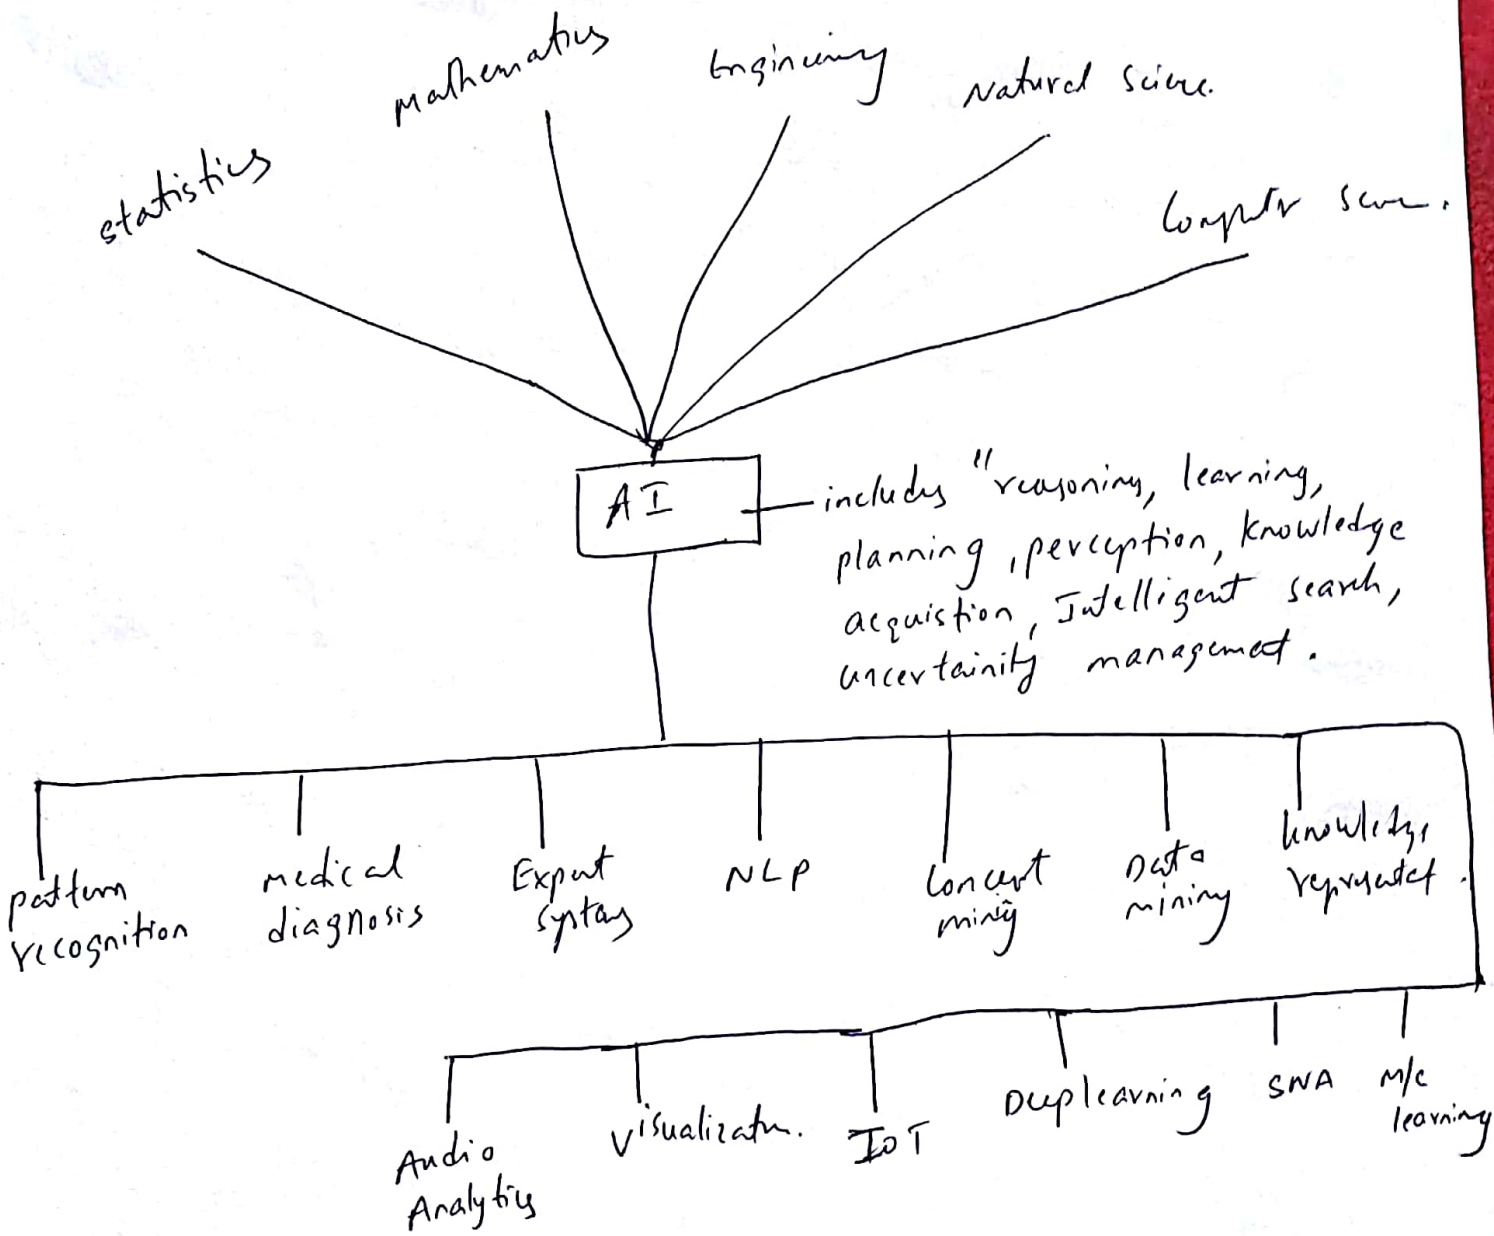 statistics
Mathematics
Engineering
Natural Science.
Computer Scien.
AI
includes "reasoning, learning,
planning, perception, knowledge
acquistion, Intelligent search,
uncertainity management.
pattern
recognition
medical
diagnosis
Expert
systems
NLP
Concept
mining
Data
mining
knowledge
representat.
Audio
Analytics
Visualizatn.
IoT
Deeplearning
SNA
M/c
learning